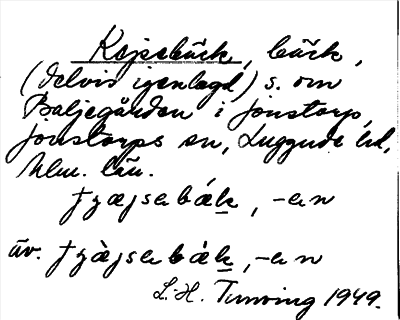 Kejsebäck, bäck,
(delvis igenlagd) s. om
Baljegården i Jonstorp,
Jonstorps sn, Luggude hd,
Mlm. län.
tyæjsebæk, -en
äv. tyæ̀jsebæ̀k, -en
L.-H. Tunving 1949.